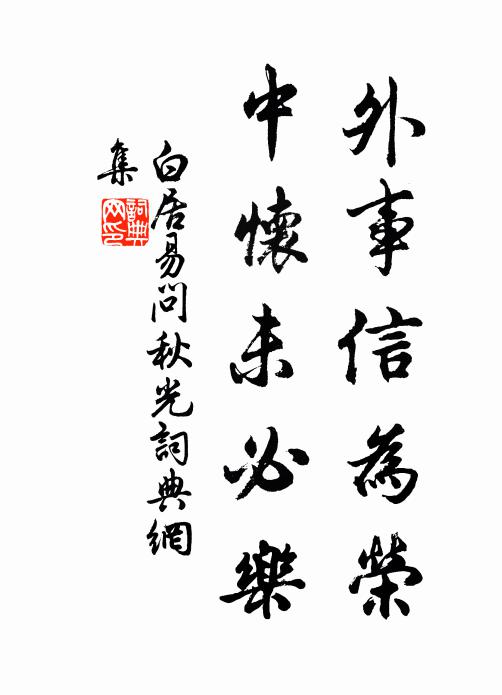 外事信為榮
中懷未必樂
白居易問秋光詞典網
集
詞典
网印